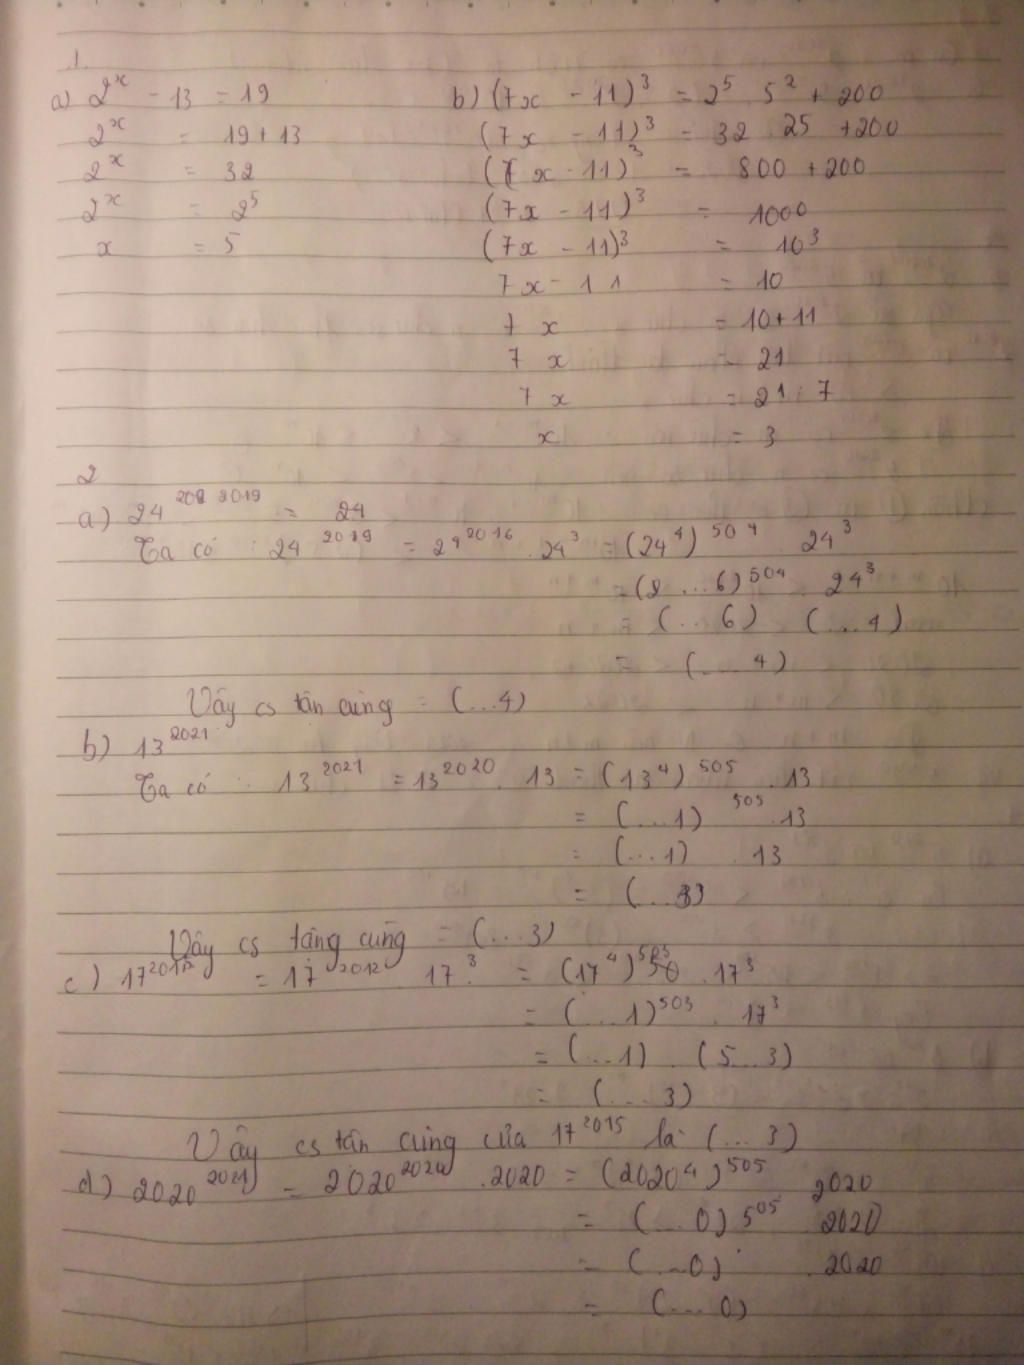 1.
a) 2^x - 13 = 19
2^x = 19 + 13
2^x = 32
2^x = 2^5
x = 5
b) (7x - 11)^3 = 2^5 . 5^2 + 200
(7x - 11)^3 = 32 . 25 + 200
(7x - 11)^3 = 800 + 200
(7x - 11)^3 = 1000
(7x - 11)^3 = 10^3
7x - 11 = 10
7x = 10 + 11
7x = 21
7x = 21 : 7
x = 3
2
a) 24^2019 = 24
Ta có : 24^2019 = 24^2016 . 24^3 = (24^4)^504 . 24^3
= (...6)^504 . 24^3
= (...6) (...4)
= (...4)
Vậy cs tân cùng = (...4)
b) 13^2021
Ta có : 13^2021 = 13^2020 . 13 = (13^4)^505 . 13
= (...1)^505 . 13
= (...1) . 13
= (...3)
Vậy cs tâng cùng = (...3)
c) 17^2015 = 17^2012 . 17^3 = (17^4)^503 . 17^3
= (...1)^503 . 17^3
= (...1) . (5...3)
= (...3)
Vây cs tân cùng của 17^2015 là (...3)
d) 2020^2021 = 2020^2020 . 2020 = (2020^4)^505 2020
= (...0)^505 2020
= (...0) . 2020
= (...0)